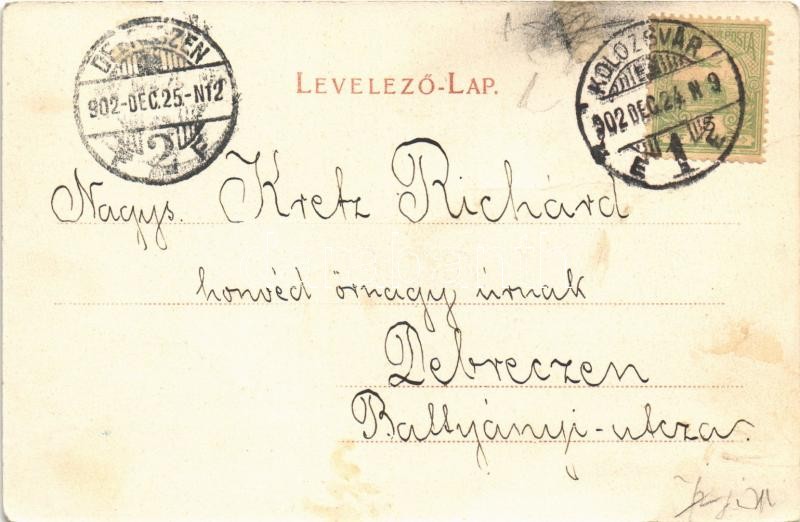 DEBRECZEN
902-DEC.25-N12
2
F
LEVELEZŐ-LAP.
KOLOZSVÁR
902 DEC.24 N 9
E 1
POSTA
Nagys. Kretz Richárd
honvéd őrnagy úrnak
Debreczen
Battyányi-utcza.